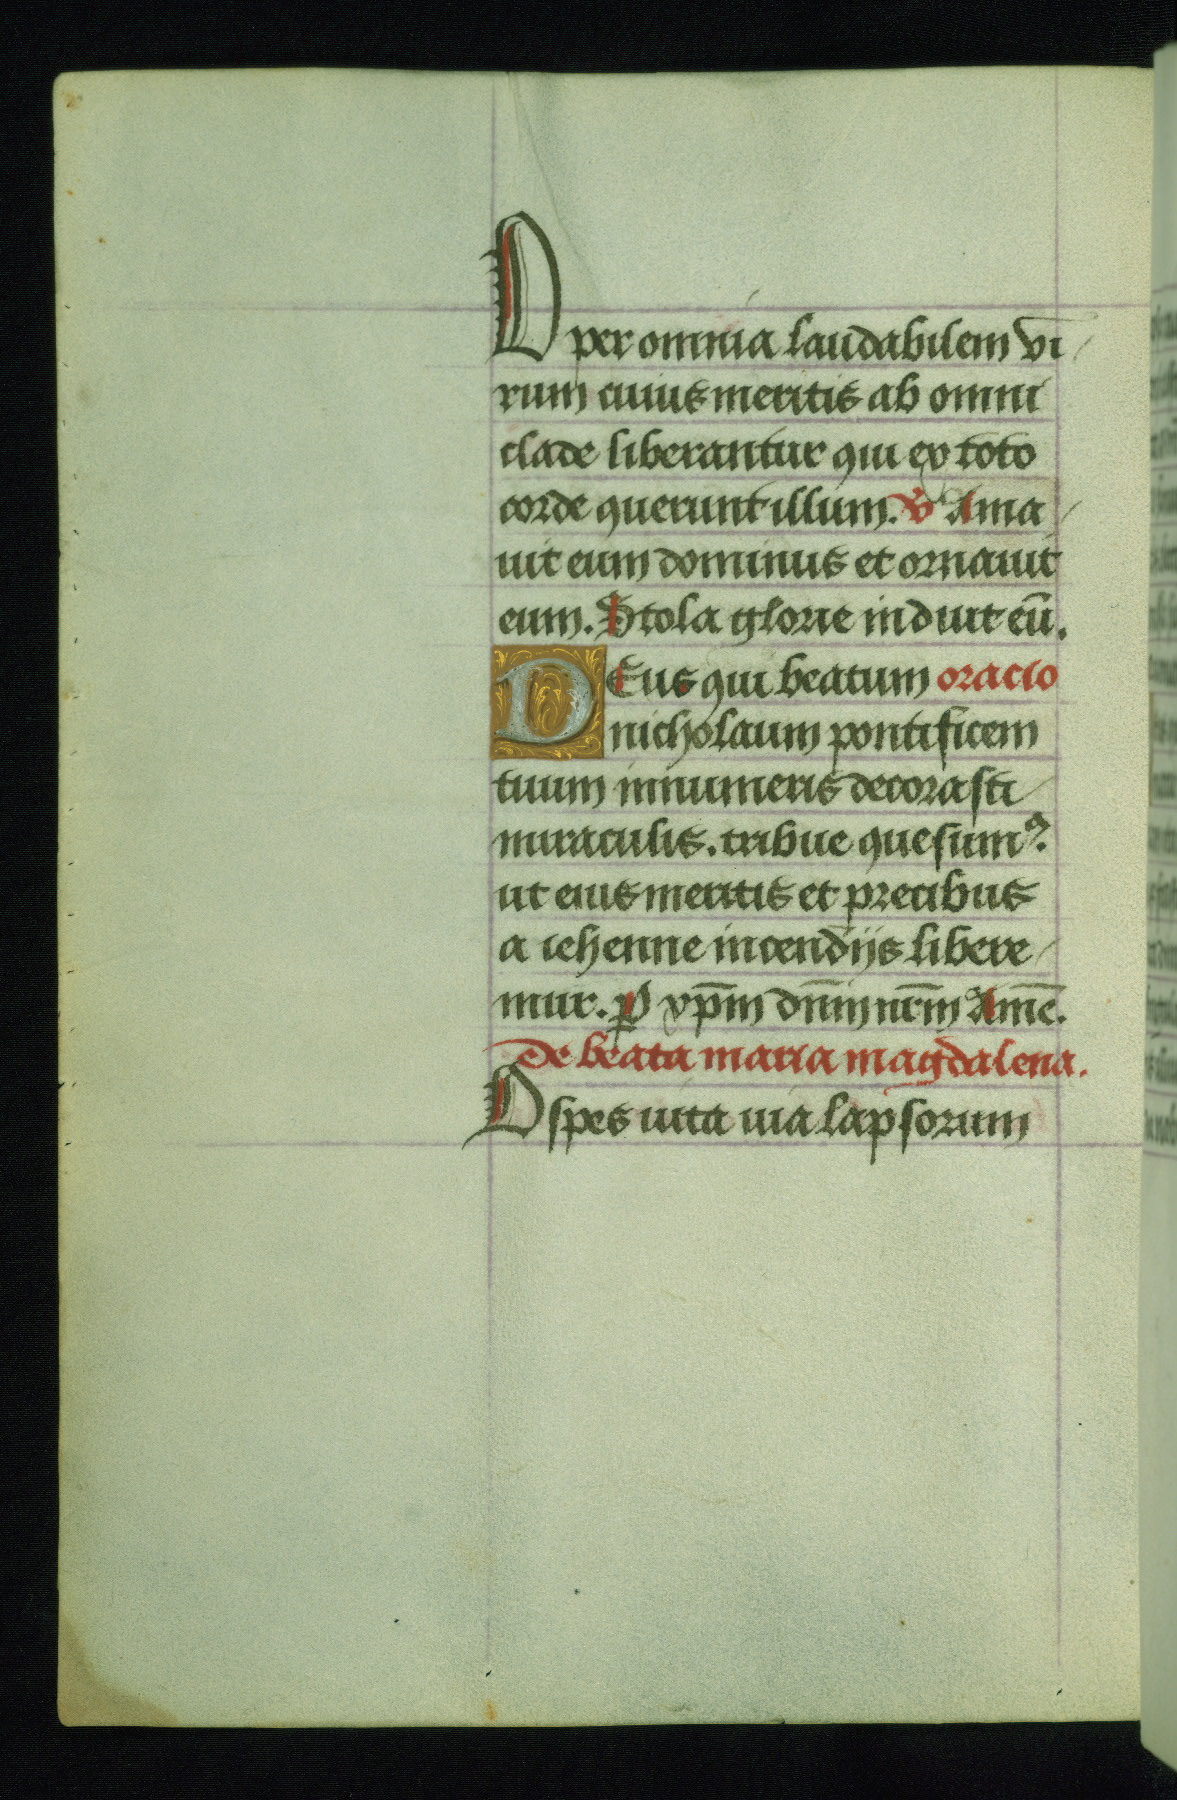 O per omnia laudabilem vi
rum cuius meritis ab omni
clade liberantur qui ex toto
corde querunt illum. V Ama
uit eum dominus et ornauit
eum. Stola glorie induit eū.
DEus qui beatum oracio
nicholaum pontificem
tuum innumeris decorasti
miraculis. tribue quesumꝰ.
ut eius meritis et precibus
a iehenne incendijs libere
mur. ꝑ xp̄m dn̄m nr̄m Amē.
De beata maria magdalena.
O spes uita uia lapsorum